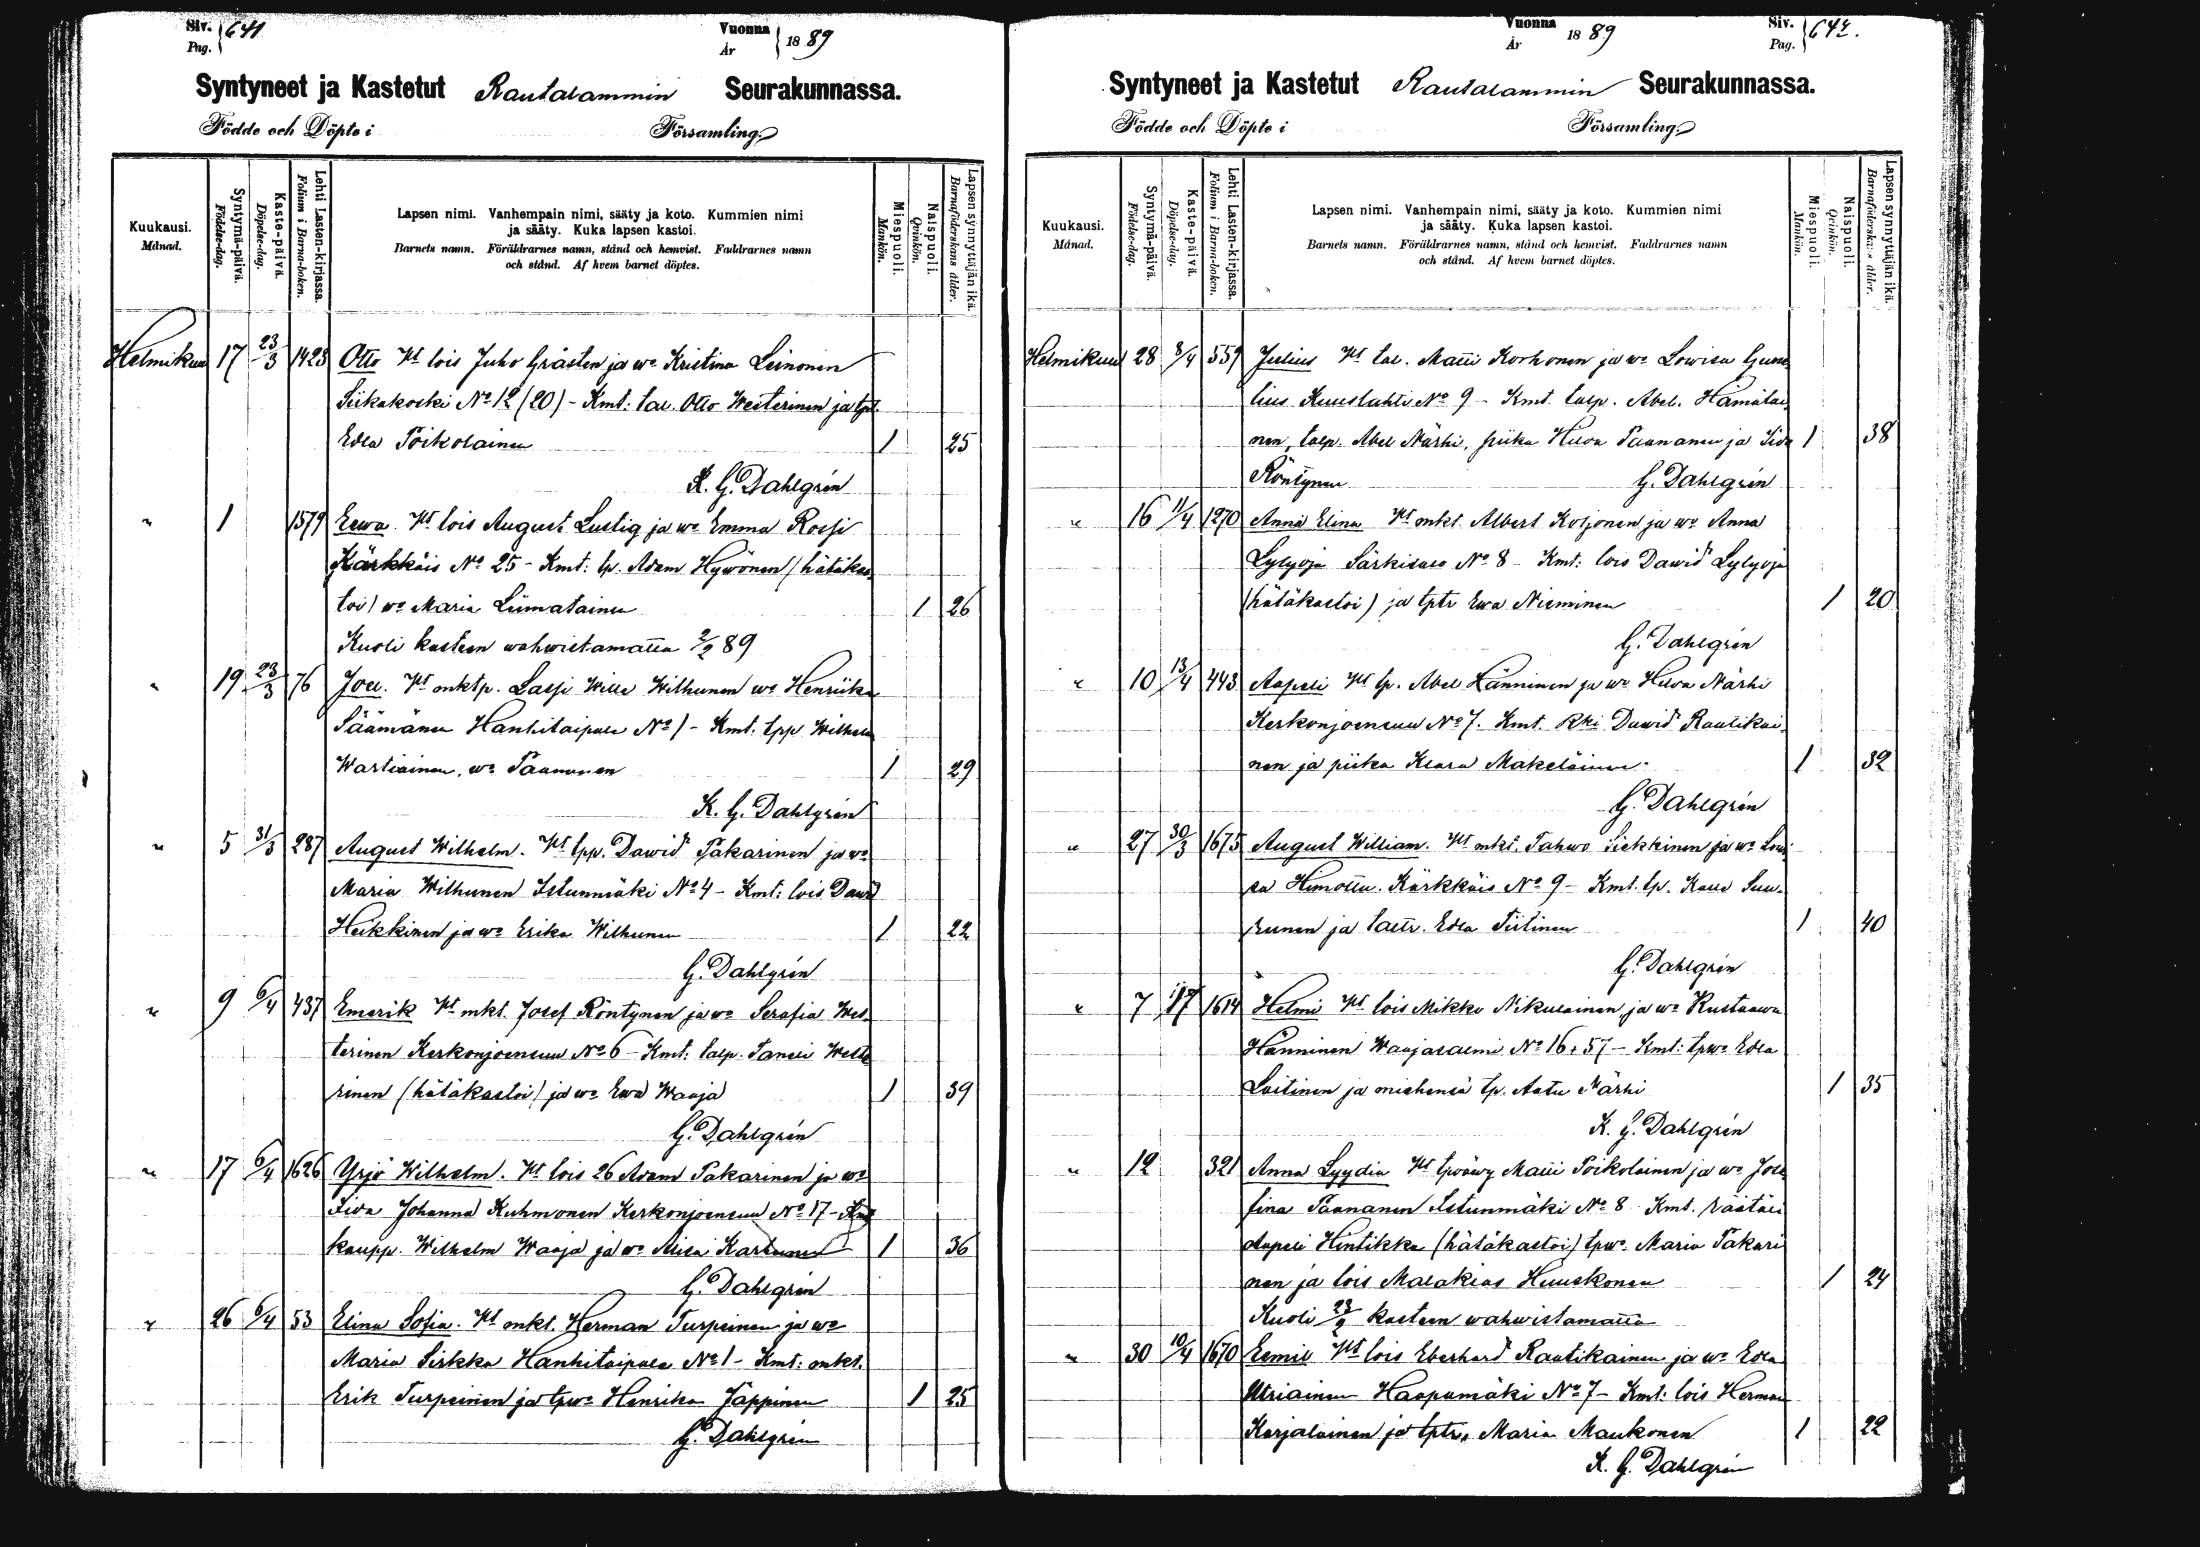 Siv. Pag. 641
Vuonna År 1889
Syntyneet ja Kastetut Rautalammin Seurakunnassa.
Födde och Döpte i Församling.
Kuukausi. Månad.
Syntymä-päivä. Födelse-dag.
Kaste-päivä. Döpelse-dag.
Lehti Lasten-kirjassa. Folium i Barna-boken.
Lapsen nimi. Vanhempain nimi, sääty ja koto. Kummien nimi
ja sääty. Kuka lapsen kastoi.
Barnets namn. Föräldrarnes namn, stånd och hemvist. Faddrarnes namn
och stånd. Af hvem barnet döptes.
Miespuoli. Mankön.
Naispuoli. Qvinkön.
Lapsen synnyttäjän ikä. Barnaföderskans ålder.
Helmikuu 17 23/3 1423 Otto Vt lois Juho Gråsten ja wo Kristina Leinonen
Siikakoski No 12 (20) - Kmt: tal. Otto Westerinen ja tpt.
Edla Poikolainen 1 25
K. G. Dahlgrén
" 1 1579 Eewa. Vt lois August Lustig ja wo Emma Rossi
Kärkkäis No 25 - Kmt: tp. Adam Hyvönen (hätäkas-
toi) wo Maria Liimatainen 1 26
Kuoli kasteen wahwistamatta 2/2 89
" 19 23/3 76 Joel. Vt mktp. Lassi Wille Wilhunen wo Henriika
Säämänen Hanhitaipale No 1 - Kmt: tpp Wilhelm
Wartiainen, wo Paananen 1 29
K. G. Dahlgrén
" 5 31/3 287 August Wilhelm. Vt tpp. Dawid Pakarinen ja wo
Maria Wilhunen Istunmäki No 4 - Kmt: lois Dawid
Heikkinen ja wo Erika Wilhunen 1 22
G. Dahlgrén
" 9 6/4 437 Emerik Vt mkt. Josef Röntynen ja wo Serafia Wes-
terinen Kerkonjoensuu No 6 - Kmt: talp. Taneli Weste
rinen (hätäkastoi) ja wo Ewa Waaja 1 39
G. Dahlgrén
" 17 6/4 1626 Yrjö Wilhelm. Vt lois 26 Adam Pakarinen ja wo
Fiva Johanna Kuhmonen Kerkonjoensuu No 17 - Kmt
kaupp. Wilhelm Waaja ja wo Miina Kartunen 1 36
G. Dahlgrén
" 26 6/4 53 Elina Sofia. Vt mkt. Herman Turpeinen ja wo
Maria Sirkka Hanhitaipale No 1 - Kmt: mkt.
Erik Turpeinen ja tpwo Henrika Jäppinen 1 25
G. Dahlgrén
Vuonna År 1889
Siv. Pag. 642.
Syntyneet ja Kastetut Rautalammin Seurakunnassa.
Födde och Döpte i Församling.
Kuukausi. Månad.
Syntymä-päivä. Födelse-dag.
Kaste-päivä. Döpelse-dag.
Lehti Lasten-kirjassa. Folium i Barna-boken.
Lapsen nimi. Vanhempain nimi, sääty ja koto. Kummien nimi
ja sääty. Kuka lapsen kastoi.
Barnets namn. Föräldrarnes namn, stånd och hemvist. Faddrarnes namn
och stånd. Af hvem barnet döptes.
Miespuoli. Mankön.
Naispuoli. Qvinkön.
Lapsen synnyttäjän ikä. Barnaföderskans ålder.
Helmikuu 28 8/4 559 Julius Vt tal. Matti Korhonen ja wo Lowisa Gume-
lius Kuuslahti No 9 - Kmt. talp. Abel. Hämälai-
nen, talp. Abel Närhi, piika Hilda Paananen ja Iida 1 38
Röntynen G. Dahlgrén
" 16 11/4 1270 Anna Elina Vt mkt. Albert Kotjonen ja wo Anna
Lylyoja Särkisalo No 8 - Kmt: lois Dawid Lylyoja
(hätäkastoi) ja tptr Ewa Nieminen 1 20
G. Dahlgrén
" 10 13/4 443 Aapeli Vt tp. Abel Hänninen ja wo Hilda Närhi
Kerkonjoensuu No 7. Kmt. Rki Dawid Rautikai-
nen ja piika Klara Makeläinen 1 32
G. Dahlgrén
" 27 30/3 1675 August William. Vt mkt. Pahwo Siekkinen ja wo Lowi
sa Himottu. Kärkkäis No 9 - Kmt. tp. Kalle Suu-
runen ja taltr. Edla Tiitinen 1 40
G. Dahlgrén
" 7 1614 Helmi Vt lois Mikko Nikulainen ja wo Kustaawa
Hänninen Waajasalmi No 16, 57 - Kmt: tpwo Edla
Laitinen ja miehensä tp. Aatu Närhi 1 35
K. G. Dahlgrén
" 12 321 Anna Lyydia Vt tpwäwy Matti Poikolainen ja wo Jose-
fina Paananen Istunmäki No 8 Kmt. räätäli
Aapeli Hintikka (hätäkastoi) tpwo Maria Pakari
nen ja lois Malakias Huuskonen 1 24
Kuoli 23/2 kasteen wahwistamatta
" 30 10/4 1670 Eemil Vt lois Eberhard Rautikainen ja wo Edla
Utriainen Haapamäki No 7 - Kmt: lois Herman
Karjalainen ja tptr. Maria Maukonen 1 22
K. G. Dahlgrén